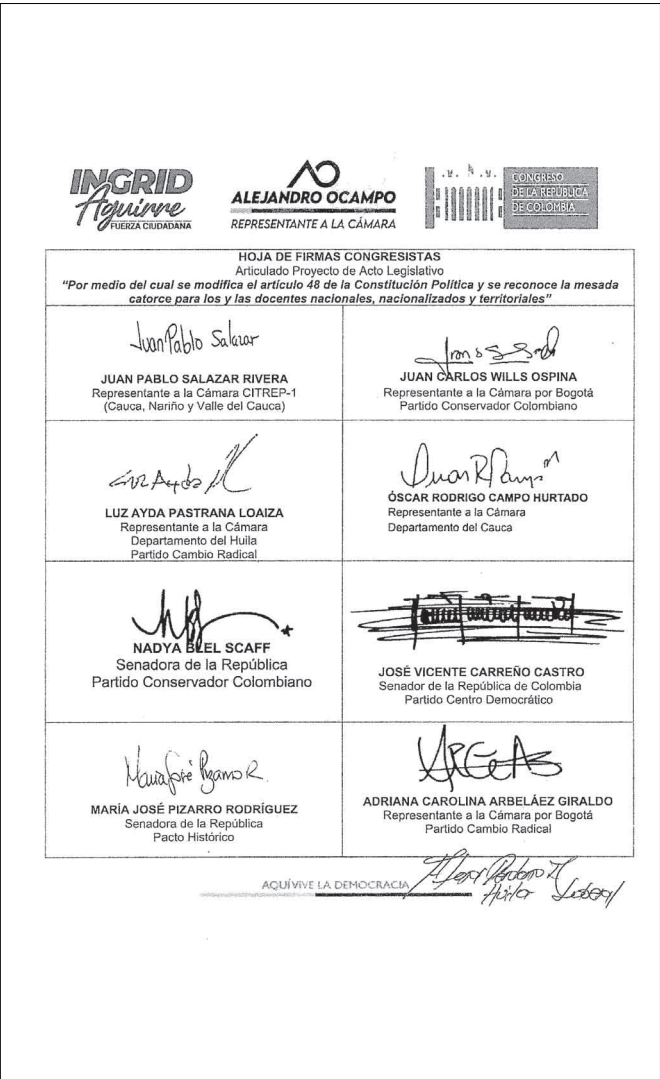 INGRID
Aguirre
FUERZA CIUDADANA
ALEJANDRO OCAMPO
REPRESENTANTE A LA CÁMARA
CONGRESO
DE LA REPÚBLICA
DE COLOMBIA
HOJA DE FIRMAS CONGRESISTAS
Articulado Proyecto de Acto Legislativo
"Por medio del cual se modifica el artículo 48 de la Constitución Política y se reconoce la mesada
catorce para los y las docentes nacionales, nacionalizados y territoriales"
Juan Pablo Salazar
JUAN PABLO SALAZAR RIVERA
Representante a la Cámara CITREP-1
(Cauca, Nariño y Valle del Cauca)
JUAN CARLOS WILLS OSPINA
Representante a la Cámara por Bogotá
Partido Conservador Colombiano
Luz Ayda
LUZ AYDA PASTRANA LOAIZA
Representante a la Cámara
Departamento del Huila
Partido Cambio Radical
ÓSCAR RODRIGO CAMPO HURTADO
Representante a la Cámara
Departamento del Cauca
NADYA BLEL SCAFF
Senadora de la República
Partido Conservador Colombiano
JOSÉ VICENTE CARREÑO CASTRO
Senador de la República de Colombia
Partido Centro Democrático
María José Pizarro R.
MARÍA JOSÉ PIZARRO RODRÍGUEZ
Senadora de la República
Pacto Histórico
ADRIANA CAROLINA ARBELÁEZ GIRALDO
Representante a la Cámara por Bogotá
Partido Cambio Radical
AQUÍ VIVE LA DEMOCRACIA
Huila Liberal